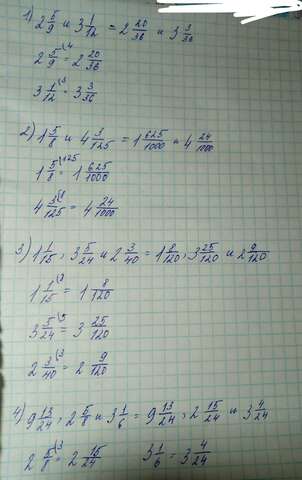 1) 2 5/9 и 3 1/12 = 2 20/36 и 3 3/36
2 5/9 \4 = 2 20/36
3 1/12 \3 = 3 3/36
2) 1 5/8 и 4 3/125 = 1 625/1000 и 4 24/1000
1 5/8 \125 = 1 625/1000
4 3/125 \8 = 4 24/1000
3) 1 1/15, 3 5/24 и 2 3/40 = 1 8/120, 3 25/120 и 2 9/120
1 1/15 \8 = 1 8/120
3 5/24 \5 = 3 25/120
2 3/40 \3 = 2 9/120
4) 9 13/24, 2 5/8 и 3 1/6 = 9 13/24, 2 15/24 и 3 4/24
2 5/8 \3 = 2 15/24 3 1/6 = 3 4/24